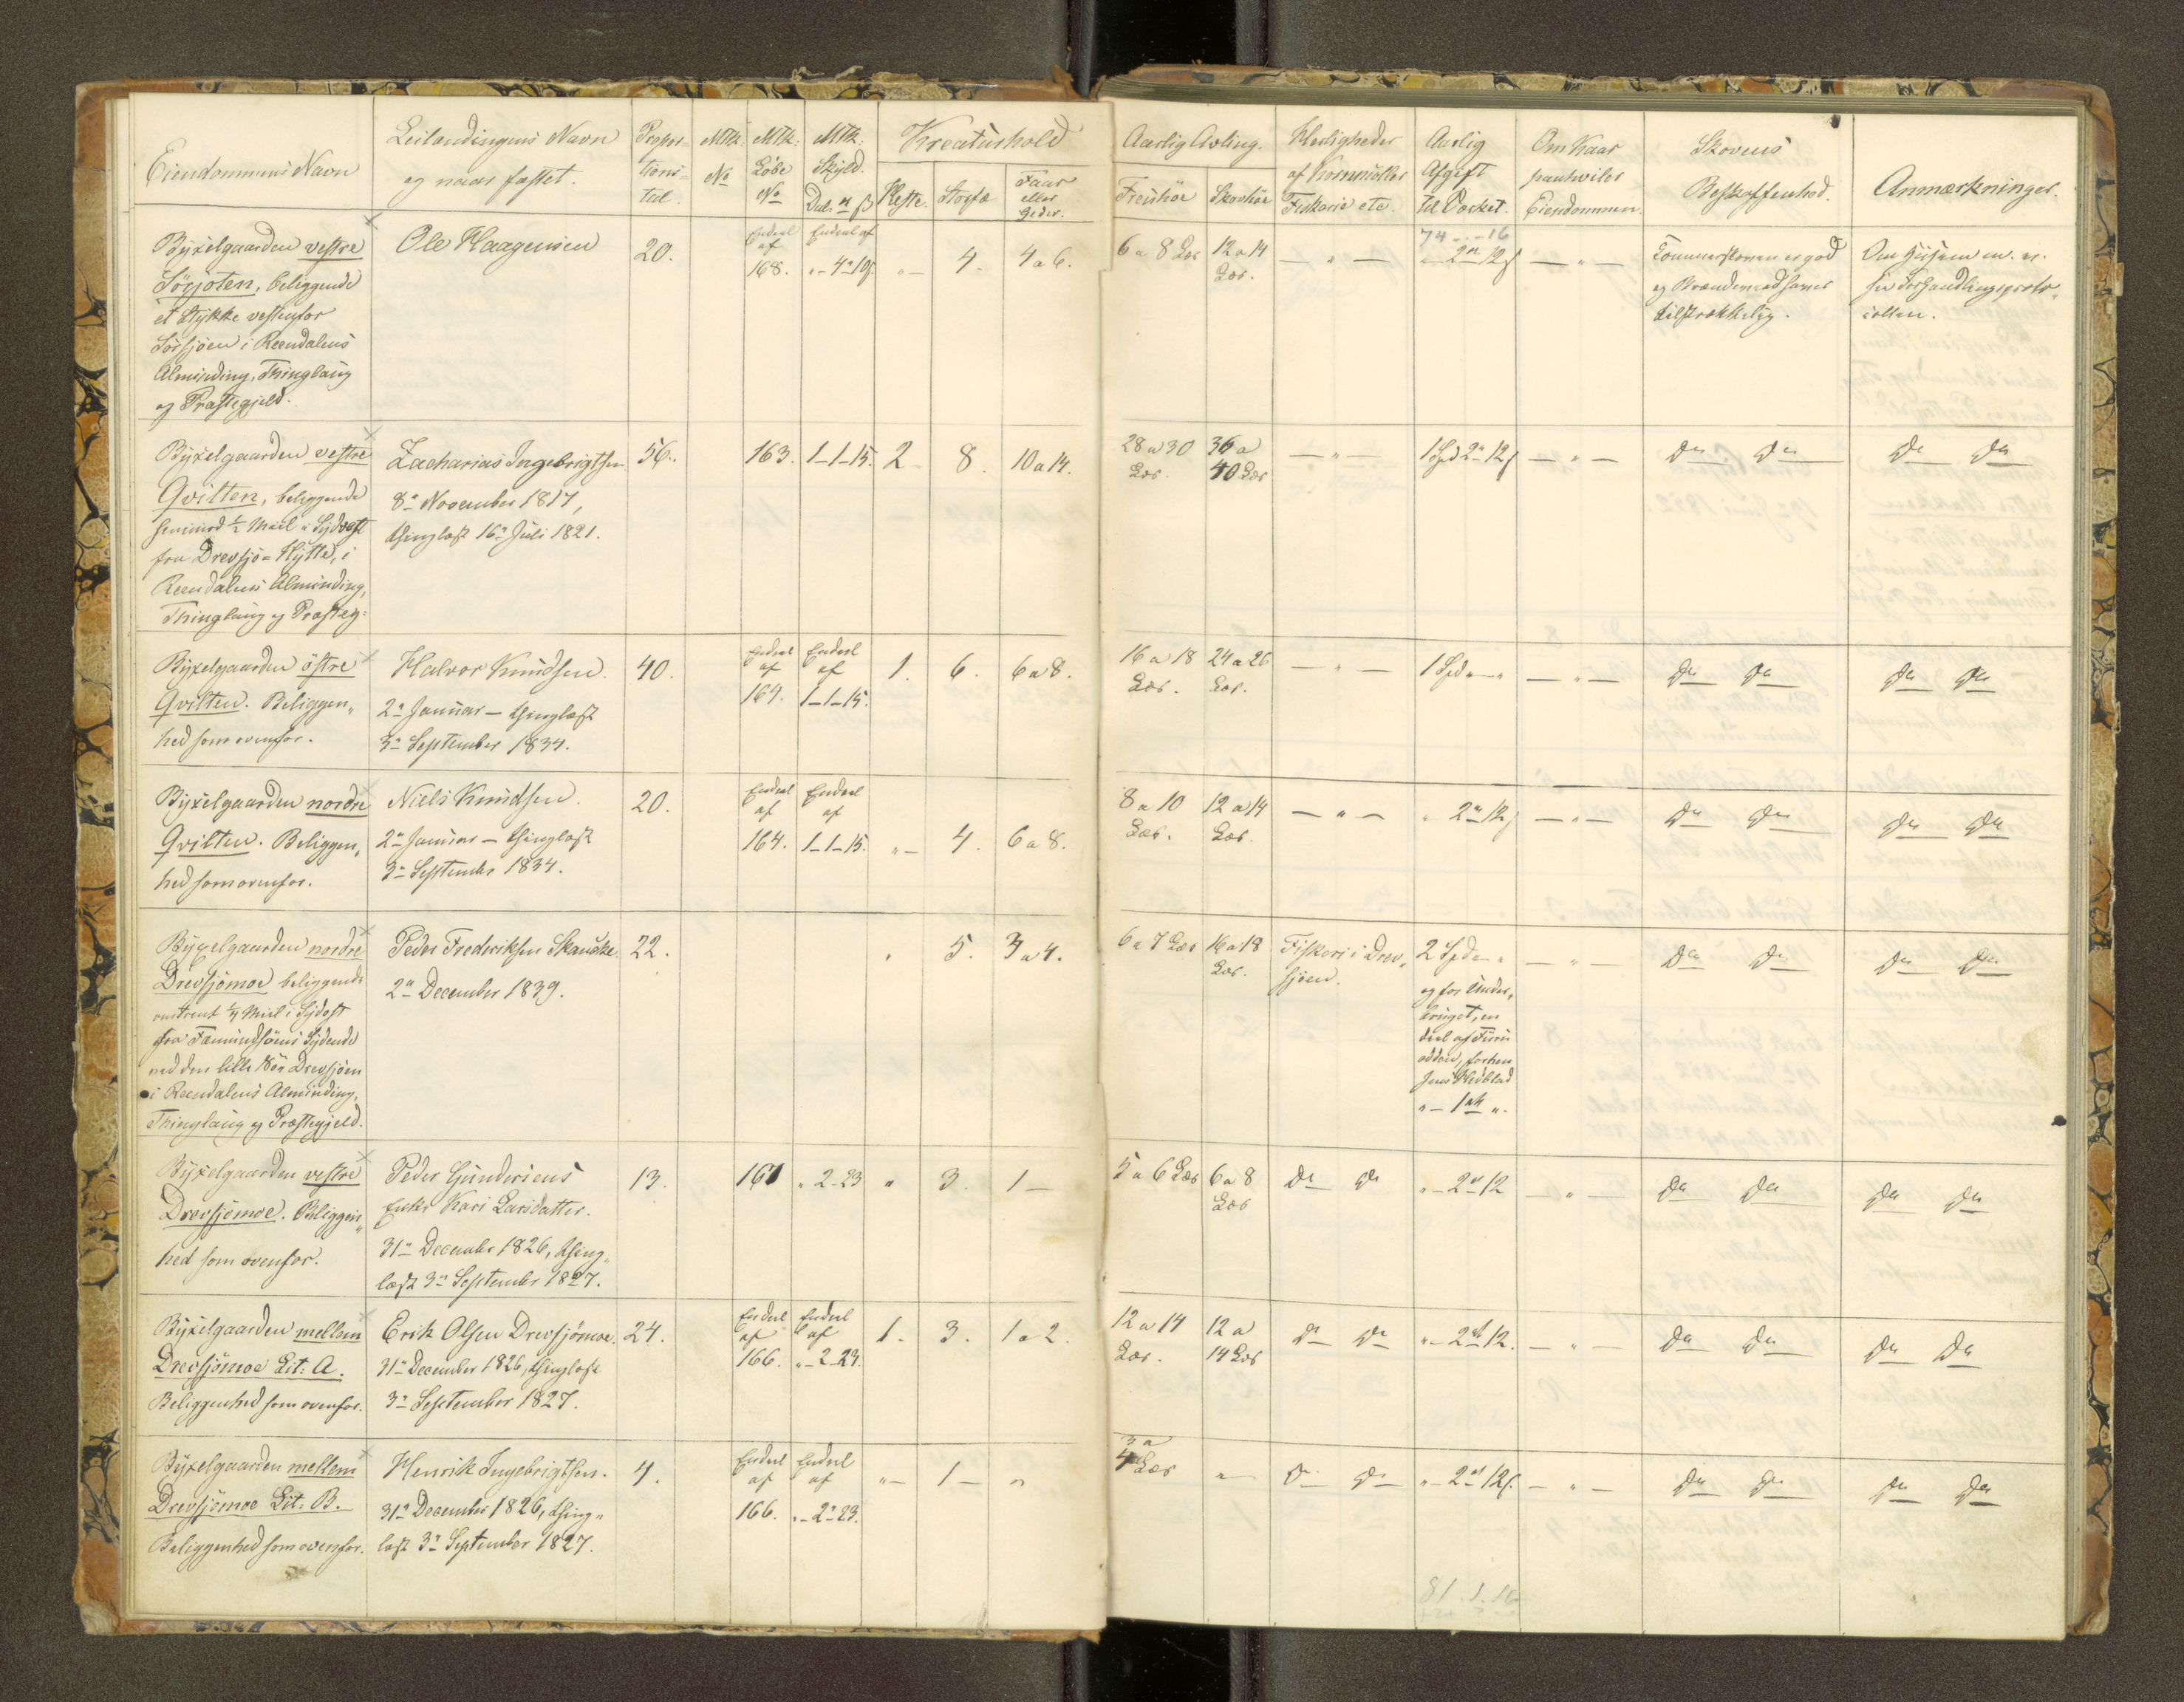 Eiendommens Navn
Leilændingens Navn
og naar fæstet.
Propor-
tions-
tal.
Mtk:
No
Mtk:
Löbe
No
Mtk:
Skyld.
Dal. ₥ β
Kreaturhold
Heste.
Storfæ
Faar
eller
Geder.
Aarlig Avling.
Fröehöe
Skovhöe
Herligheder
af Kornmöller
Fiskerie etc.
Aarlig
Afgift
til Værket.
Om Kaar
paahviler
Eiendommen.
Skovens
Beskaffenhed.
Anmærkninger.
Byxelgaarden vestre
Sörjoten, beliggende
et Stykke vestenfor
Sörsjöen i Reendalens
Alminding, Thinglaug
og Præstegjeld.
Ole Haagensen
20.
Endeel
af
168.
Endeel af
" - 4 - 19.
" -
4.
4 a 6.
6 a 8 Læs
12 a 14
Læs.
— " —
74 - - 16
" 2 12 β
— " —
Tömmerskoven er god
og Brændeved haves
tilstrækkelig.
Om Husene m. v.
see Forhandlingsproto-
collen.
Byxelgaarden vestre
Qvilten, beliggende
henimod ½ Miil i Sydvest
fra Drevsjö-Hytte, i
Reendalens Alminding,
Thinglaug og Præsteg:
Zacharias Ingebrigtsen
8de November 1817,
thinglæst 16de Juli 1821.
56.
163.
1-1-15.
2
8.
10 a 14.
28 a 30
Læs.
36 a
40 Læs
— " —
1 Spd 2 12 β
— " —
Do Do
Do Do
Byxelgaarden östre
Qvilten. Beliggen-
hed som ovenfor.
Halvor Knudsen.
2den Januar - thinglæst
3de September 1834.
40.
Endeel
af
164.
Endeel
af
1-1-15.
1.
6.
6 a 8.
16 a 18
Læs.
24 a 26
Læs.
— " —
1 Spd " - "
— " —
Do Do
Do Do
Byxelgaarden nordre
Qvilten. Beliggen-
hed som ovenfor.
Niels Knudsen.
2den Januar - thinglæst
3de September 1834.
20.
Endeel
af
164.
Endeel
af
1-1-15.
" -
4.
6 a 8.
8 a 10
Læs.
12 a 14
Læs.
— " —
" 2 12 β
— " —
Do Do
Do Do
Byxelgaarden nordre
Drevsjömoe beliggende
omtrent ¼ Miil i Sydost
fra Fæmundsöens Sydende
ved den lille Nör Drevsjöen
i Reendalens Alminding,
Thinglaug og Præstegjeld.
Peder Frederiksen Skancke.
2den December 1839.
22.
"
5.
3 a 4.
6 a 7 Læs
16 a 18
Læs.
Fiskeri i Drev-
sjöen.
2 Spd - "
og for Under-
bruget, en
deel af Furu
odden, forhen
Jens Hedblad
" - 1 ort ".
— " —
Do Do
Do Do
Byxelgaarden vestre
Drevsjömoe. Beliggen-
hed som ovenfor.
Peder Gundersens
Enke Kari Larsdatter.
31te December 1826, thing-
læst 3de September 1827.
13.
161
" 2-23
"
3.
1 -
5 a 6 Læs
6 a 8
Læs
Do Do
" - 2 12
— " —
Do Do
Do Do
Byxelgaarden mellem
Drevsjömoe Lit: A.
Beliggenhed som ovenfor.
Erik Olsen Drevsjömoe.
31te December 1826, thinglæst
3de September 1827.
24.
Endeel
af
166.
Endeel
af
" - 2-23.
1.
3.
1 a 2.
12 a 14
Læs.
12 a
14 Læs
Do Do
" - 2 12.
— " —
Do Do
Do Do
Byxelgaarden mellem
Drevsjömoe Lit: B.
Beliggenhed som ovenfor.
Henrik Ingebrigtsen.
31te December 1826, thing-
læst 3de September 1827.
4.
Endeel
af
166.
Endeel
af
" - 2-23.
" -
1 -
"
3 a
4 Læs
" -
Do Do
" - 2 12 β.
— " —
Do Do
Do Do
81. 1. 16